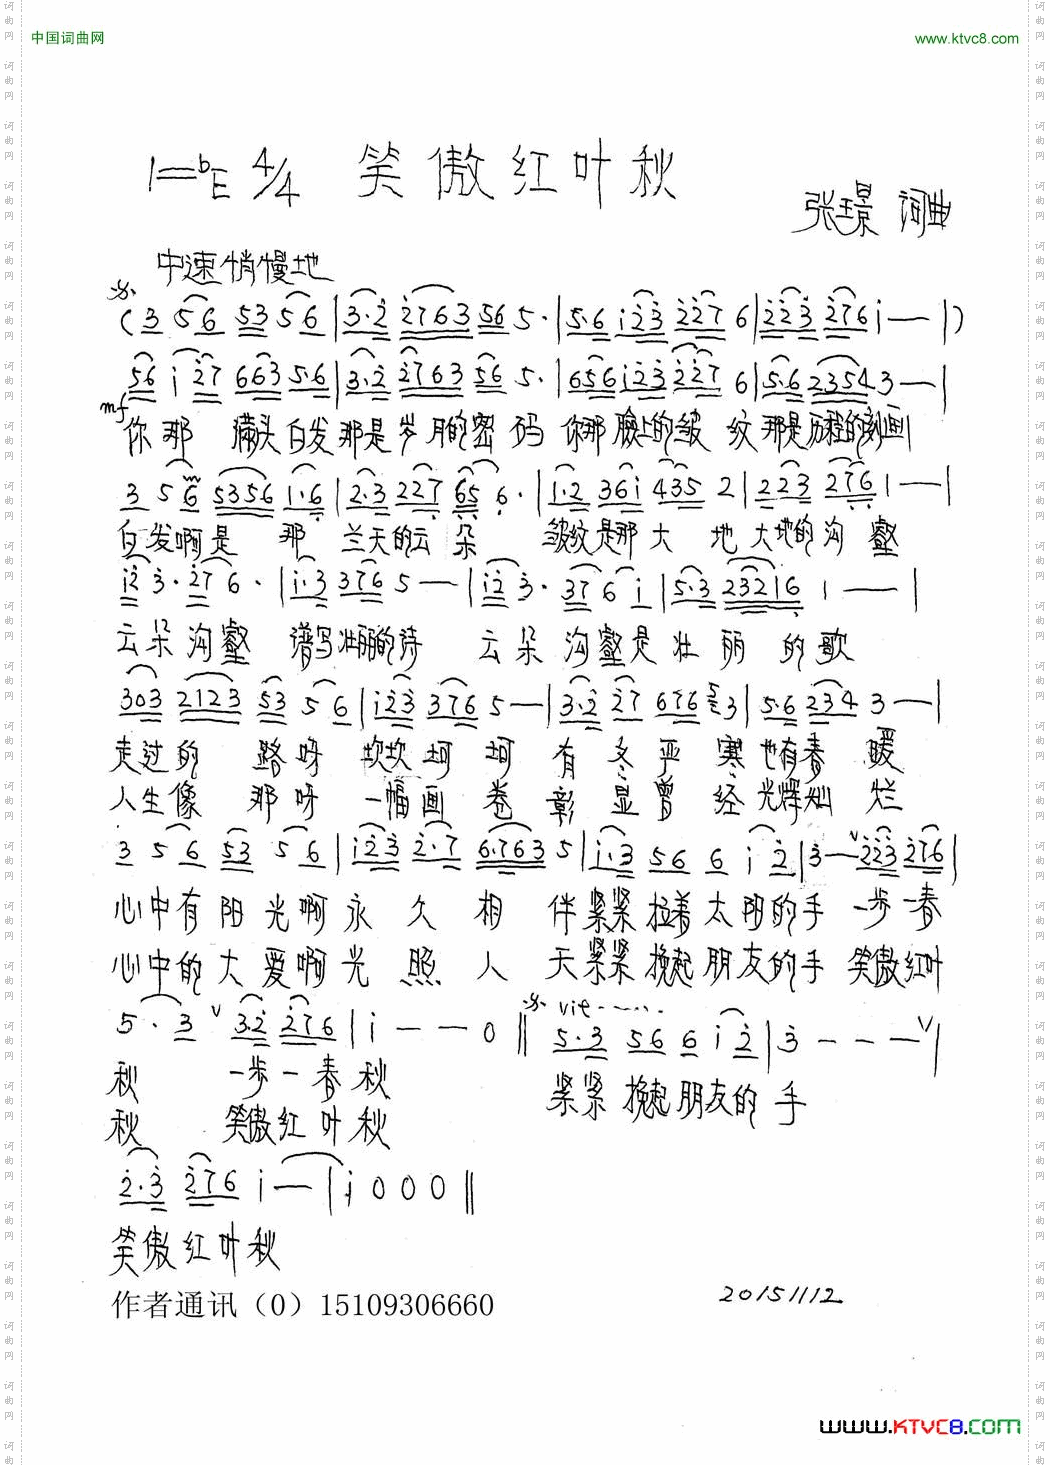 中国词曲网 www.ktvc8.com
1=bE 4/4 笑傲红叶秋
张璟 词曲
中速悄慢地
(3 56 53 56 | 3·2 2763 56 5· | 5·6 123 227 6 | 223 276 1 — — |)
56 1 27 663 5·6 | 3·2 2763 56 5· | 656 123 227 6 | 5·6 2354 3 — |
mf 你那 满头白发那是岁月的密码 你那脸上的皱纹那是历程的刻画
3 5 6 5356 1·6 | 2·3 227 65 6· | 1·2 361 435 2 | 223 276 1 — — |
白发啊是 那 兰天的云朵 皱纹是那大 地 大地的沟壑
12 3· 27 6· | 1·3 376 5 — — | 12 3· 37 6 1 | 5·3 23216 1 — — |
云朵沟壑 谱写壮丽的诗 云朵沟壑是壮丽 的歌
303 2123 53 5 6 | 123 376 5 — | 3·2 27 676 3 | 5·6 234 3 — |
走过的 路呀 坎坎坷坷 有冬严寒也有春暖
人生像 那呀 一幅画卷 彰显曾经光辉灿烂
3 5 6 53 5 6 | 123 2·7 6·763 5 | 1·3 56 6 1 2 | 3 — V 223 276 |
心中有阳光啊永久相 伴紧紧拉着太阳的手 一步一春
心中的大爱啊光照人 天紧紧挽起朋友的手 笑傲红叶
5 · 3 V 3·2 276 | 1 — — 0 || vit ······ 5·3 56 6 1 2 | 3 — — — V |
秋 一步一春秋 紧紧挽起朋友的手
秋 笑傲红叶秋
2·3 276 1 — | 1 0 0 0 ||
笑傲红叶秋
作者通讯（0）15109306660 20151112
www.KTVC8.COM